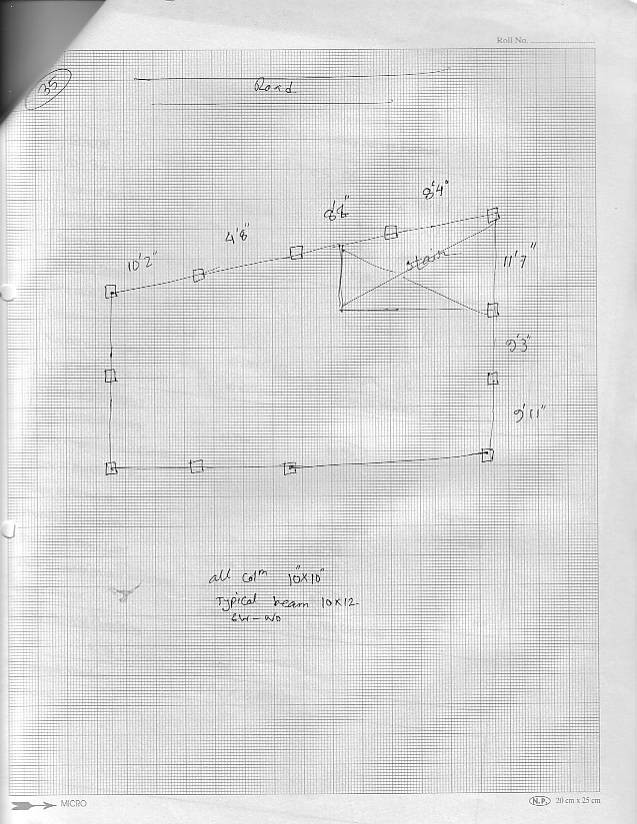 Roll No.
35
Road
8'4"
4'8"
10'2"
stair
11'7"
9'3"
9'11"
all colm 10"x10"
Typical beam 10x12
MICRO
N.P. 20 cm x 25 cm